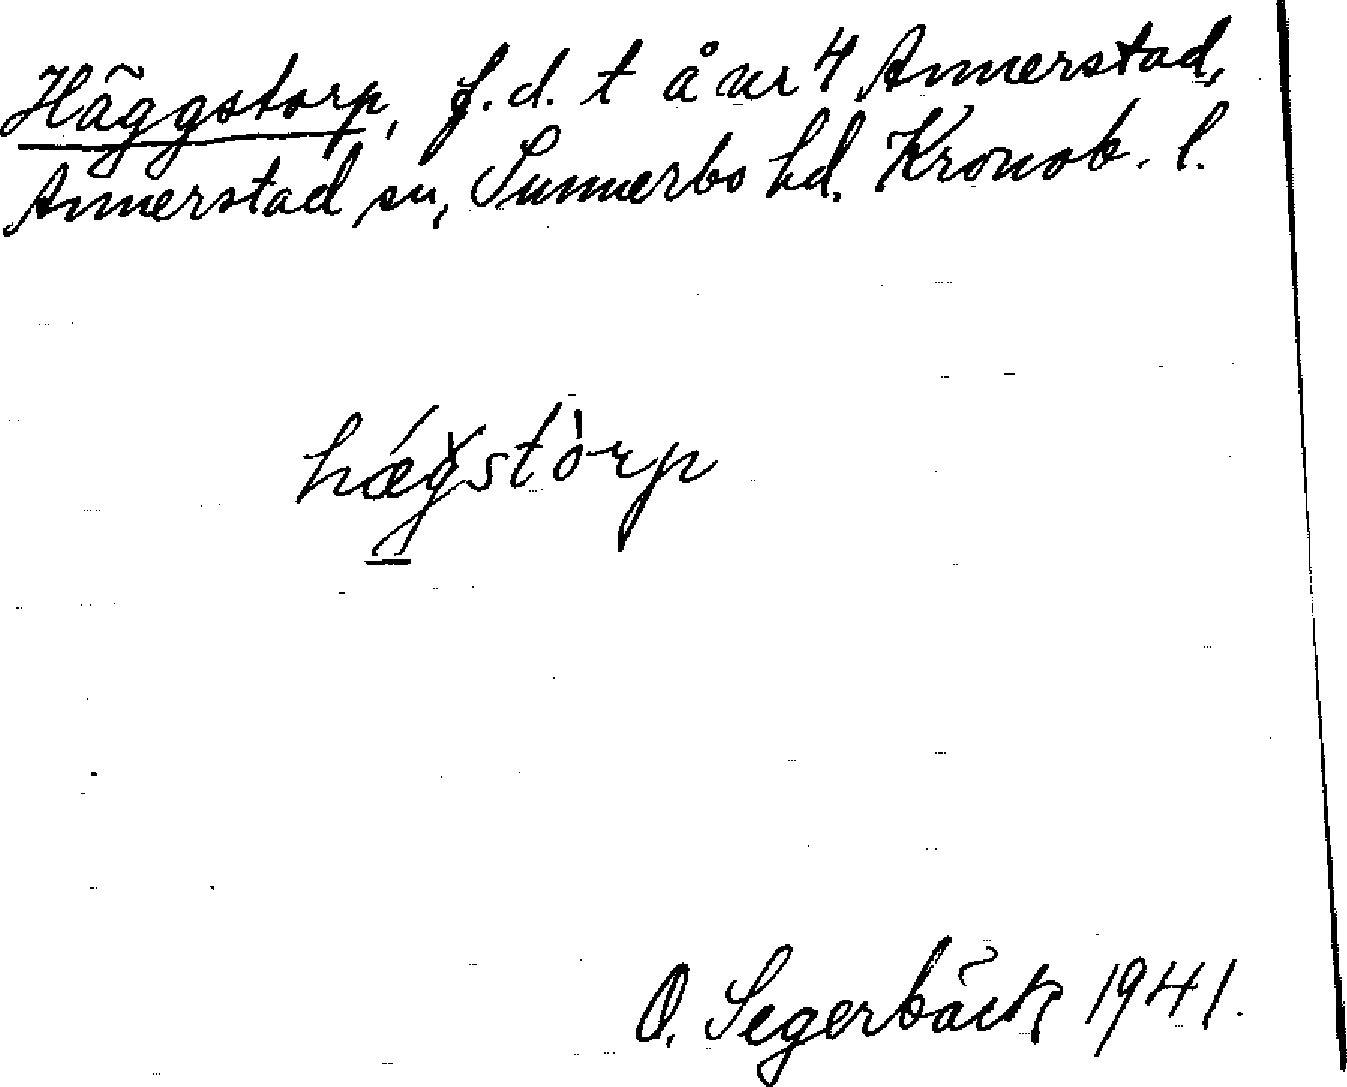 Häggstorp, f.d. t å nr 4 Annerstad,
Annerstad sn, Sunnerbo hd. Kronob. l.
hǽgstòrp
O. Segerbäck 1941.